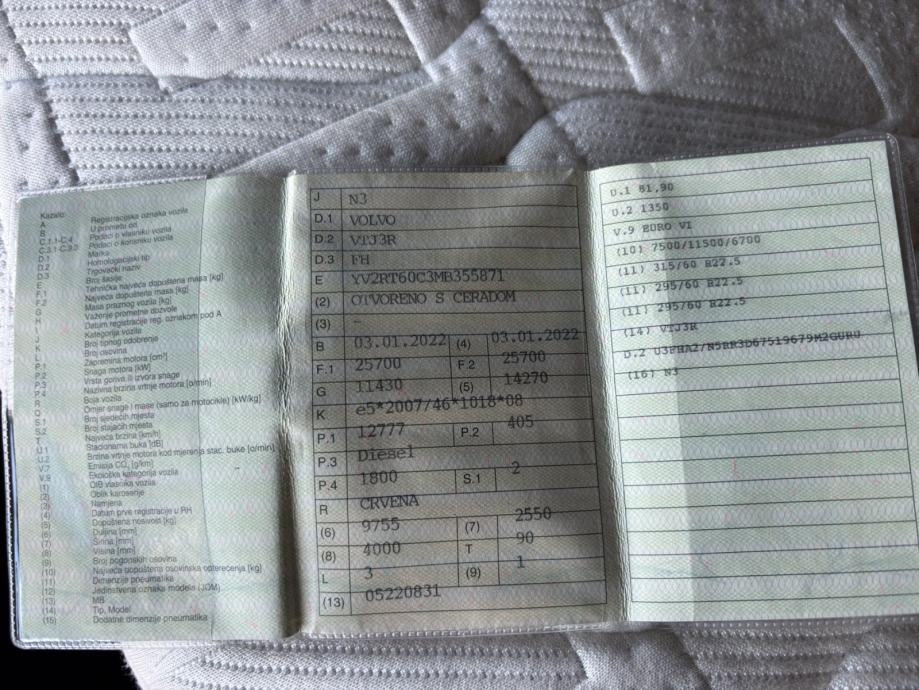 Kazalo:
A Registracijska oznaka vozila
B U prometu od
C.1.1-C.4 Podaci o vlasniku vozila
C.3.1-C.3.3 Podaci o korisniku vozila
D.1 Marka
D.2 Homologacijski tip
D.3 Trgovački naziv
E Broj šasije
F.1 Tehnička najveća dopuštena masa [kg]
F.2 Najveća dopuštena masa [kg]
G Masa praznog vozila [kg]
H Važenje prometne dozvole
I Datum registracije reg. oznakom pod A
J Kategorija vozila
K Broj tipnog odobrenje
L Broj osovina
P.1 Zapremina motora [cm³]
P.2 Snaga motora [kW]
P.3 Vrsta goriva ili izvora snage
P.4 Nazivna brzina vrtnje motora [o/min]
R Boja vozila
Q Omjer snage i mase (samo za motocikle) [kW/kg]
S.1 Broj sjedećih mjesta
S.2 Broj stajaćih mjesta
T Najveća brzina [km/h]
U.1 Stacionarna buka [dB]
U.2 Brzina vrtnje motora kod mjerenja stac. buke [o/min]
V.7 Emisija CO₂ [g/km]
V.9 Ekološka kategorija vozila
(1) OIB vlasnika vozila
(2) Oblik karoserije
(3) Namjena
(4) Datum prve registracije u RH
(5) Dopuštena nosivost [kg]
(6) Duljina [mm]
(7) Širina [mm]
(8) Visina [mm]
(9) Broj pogonskih osovina
(10) Najveća dopuštena osovinska opterećenja [kg]
(11) Dimenzije pneumatika
(12) Jedinstvena oznaka modela (JOM)
(13) MB
(14) Tip, Model
(15) Dodatne dimenzije pneumatika
J N3
D.1 VOLVO
D.2 VTJ3R
D.3 FH
E YV2RT60C3MB355871
(2) OTVORENO S CERADOM
(3) –
B 03.01.2022 (4) 03.01.2022
F.1 25700 F.2 25700
G 11430 (5) 14270
K e5*2007/46*1018*08
P.1 12777 P.2 405
P.3 Diesel
P.4 1800 S.1 2
R CRVENA
(6) 9755 (7) 2550
(8) 4000 T 90
L 3 (9) 1
(13) 05220831
U.1 81,90
U.2 1350
V.9 EURO VI
(10) 7500/11500/6700
(11) 315/60 R22.5
(11) 295/60 R22.5
(11) 295/60 R22.5
(14) VTJ3R
(16) N3